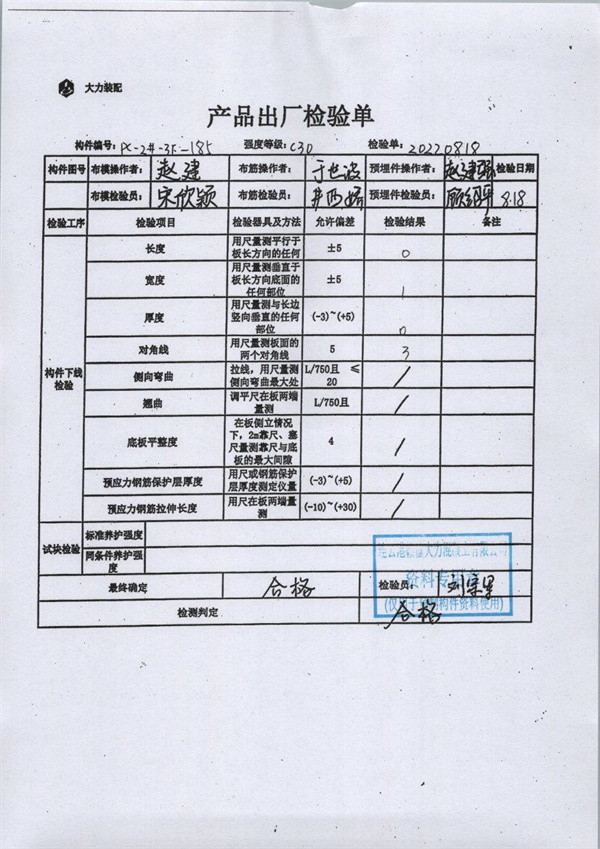 大力装配
产品出厂检验单
构件编号: PC-2#-3F-185 强度等级: C30 检验单: 20220818
构件图号 布模操作者: 赵建 布筋操作者: 于世波 预埋件操作者: 赵建 检验日期
布模检验员: 宋欣颖 布筋检验员: 预埋件检验员: 8.18
检验工序 检验项目 检验器具及方法 允许偏差 检验结果 备注
构件下线检验
长度 用尺量测平行于板长方向的任何 ±5 0
宽度 用尺量测垂直于板长方向底面的任何部位 ±5 1
厚度 用尺量测与长边竖向垂直的任何部位 (-3)~(+5) 0
对角线 用尺量测板面的两个对角线 5 3
侧向弯曲 拉线,用尺量测侧向弯曲最大处 L/750且 ≤20 /
翘曲 调平尺在板两端量测 L/750且 /
底板平整度 在板侧立情况下,2m靠尺、塞尺量测靠尺与底板的最大间隙 4 /
预应力钢筋保护层厚度 用尺或钢筋保护层厚度测定仪量 (-3)~(+5) /
预应力钢筋拉伸长度 用尺在板两端量测 (-10)~(+30) /
试块检验 标准养护强度
同条件养护强度
最终确定 合格 检验员: 刘
检测判定 合格
大力混凝土有限公司
资料专用章
构件资料使用)